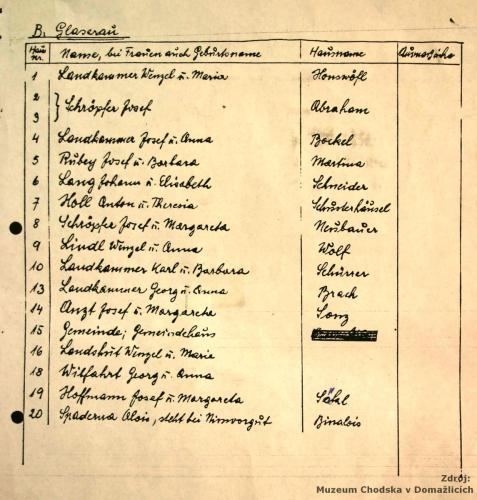 B. Glaserau
Haus nr. Name, bei Frauen auch Geburtsname Hausname
1 Landkammer Wenzel u. Maria Honswöfl
2
3 } Schröpfer Josef Abraham
4 Landkammer Josef u. Anna Bockel
5 Rubey Josef u. Barbara Martina
6 Lang Johann u. Elisabeth Schneider
7 Holl Anton u. Theresia Schusterhäusel
8 Schröpfer Josef u. Margareta Neubauer
9 Lindl Wenzel u. Anna Wolf
10 Landkammer Karl u. Barbara Schürer
13 Landkammer Georg u. Anna Brach
14 Anzt Josef u. Margareta Lonz
15 Gemeinde; Gemeindehaus
16 Landshut Wenzel u. Marie
18 Witfahrt Georg u. Anna
19 Hoffmann Josef u. Margareta
20 Spaderna Alois, steht bei Nimvorgut Binalois
Zdroj:
Muzeum Chodska v Domažlicích